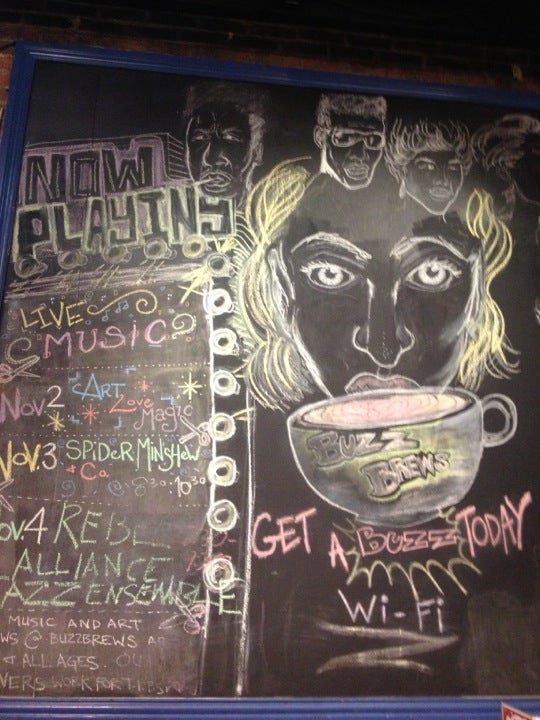 NOW
PLAYING
LIVE
MUSIC
NOV. 2 ART Love Magic
NOV. 3 SPIDER MINSHEW
+ Co. 8:30-10:30
OV. 4 REBL
ALLIANCE
AZZ ENSEMBLE
MUSIC AND ART
WS @ BUZZBREWS
ALL AGES. OU
VERS WORK FOR TIPS
BUZZ
BREWS
GET A BUZZ TODAY
Wi-Fi